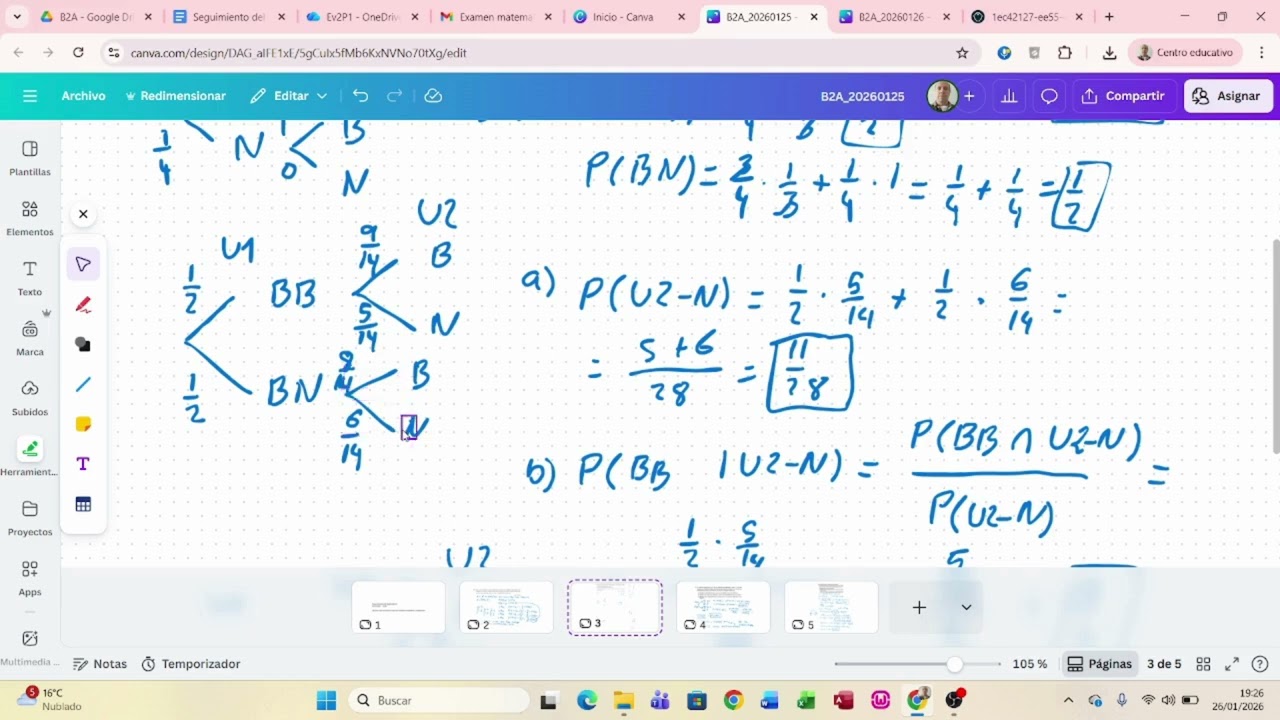 B2A - Google Dri
Seguimiento del
Ev2P1 - OneDrive
Examen matema
Inicio - Canva
B2A_20260125 -
B2A_20260126 -
1ec42127-ee55-
canva.com/design/DAG_aIFE1xE/5gCulx5fMb6KxNVNo70tXg/edit
Centro educativo
Archivo
Redimensionar
Editar
B2A_20260125
Compartir
Asignar
Plantillas
Elementos
Texto
Marca
Subidos
Herramient...
Proyectos
Apps
Multimedia ...
1/4 N 1 B
0 N
P(BN) = 3/4 · 1/3 + 1/4 · 1 = 1/4 + 1/4 = 1/2
U1 U2
1/2 BB 9/14 B
5/14 N
1/2 BN 8/14 B
6/14 N
a) P(U2-N) = 1/2 · 5/14 + 1/2 · 6/14 =
= 5+6/28 = 11/28
b) P(BB | U2-N) = P(BB ∩ U2-N)/P(U2-N) =
1/2 · 5/14
5
U2
1
2
3
4
5
Notas
Temporizador
105 %
Páginas
3 de 5
5
16°C
Nublado
Buscar
19:26
26/01/2026